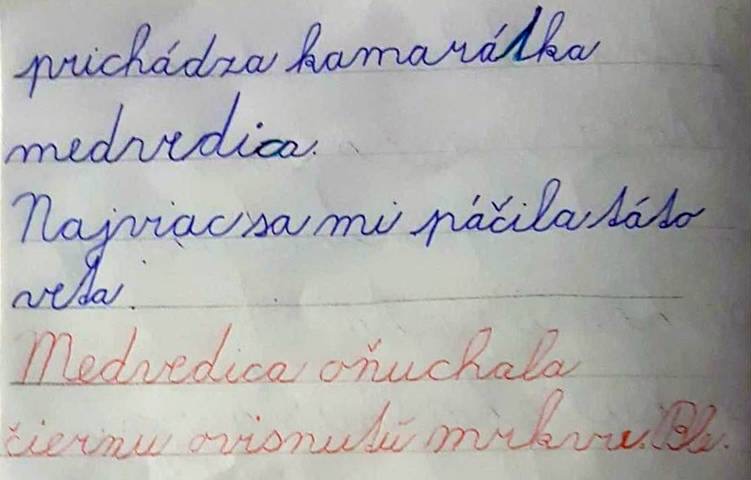 prichádza kamarátka
medvedica.
Najviac sa mi páčila táto
veta.
Medvedica oňuchala
čiernu ovisnutú mrkvu. Ble.